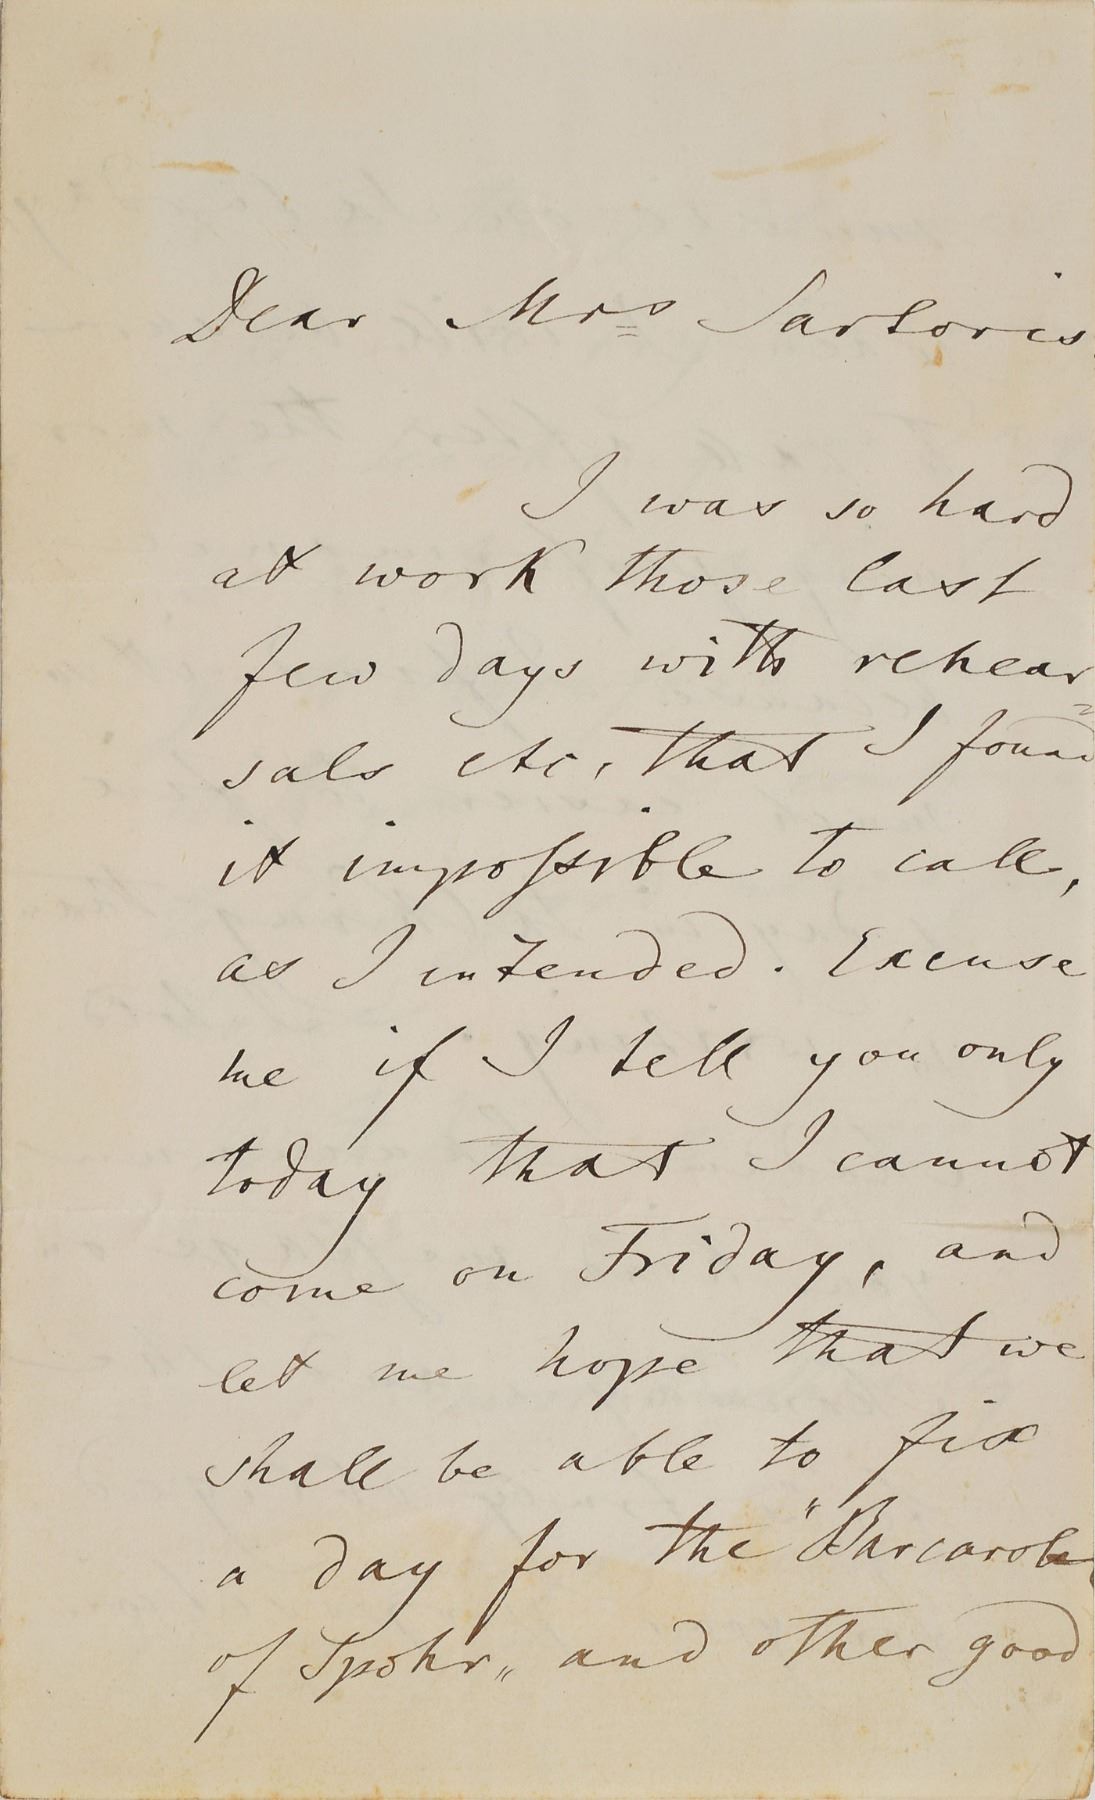 Dear Mrs Sartoris.
I was so hard
at work those last
few days with rehear=
sals etc, that I found
it impossible to call,
as I intended. Excuse
me if I tell you only
today that I cannot
come on Friday, and
let me hope that we
shall be able to fix
a day for the "Barcarole
of Spohr„ and other good